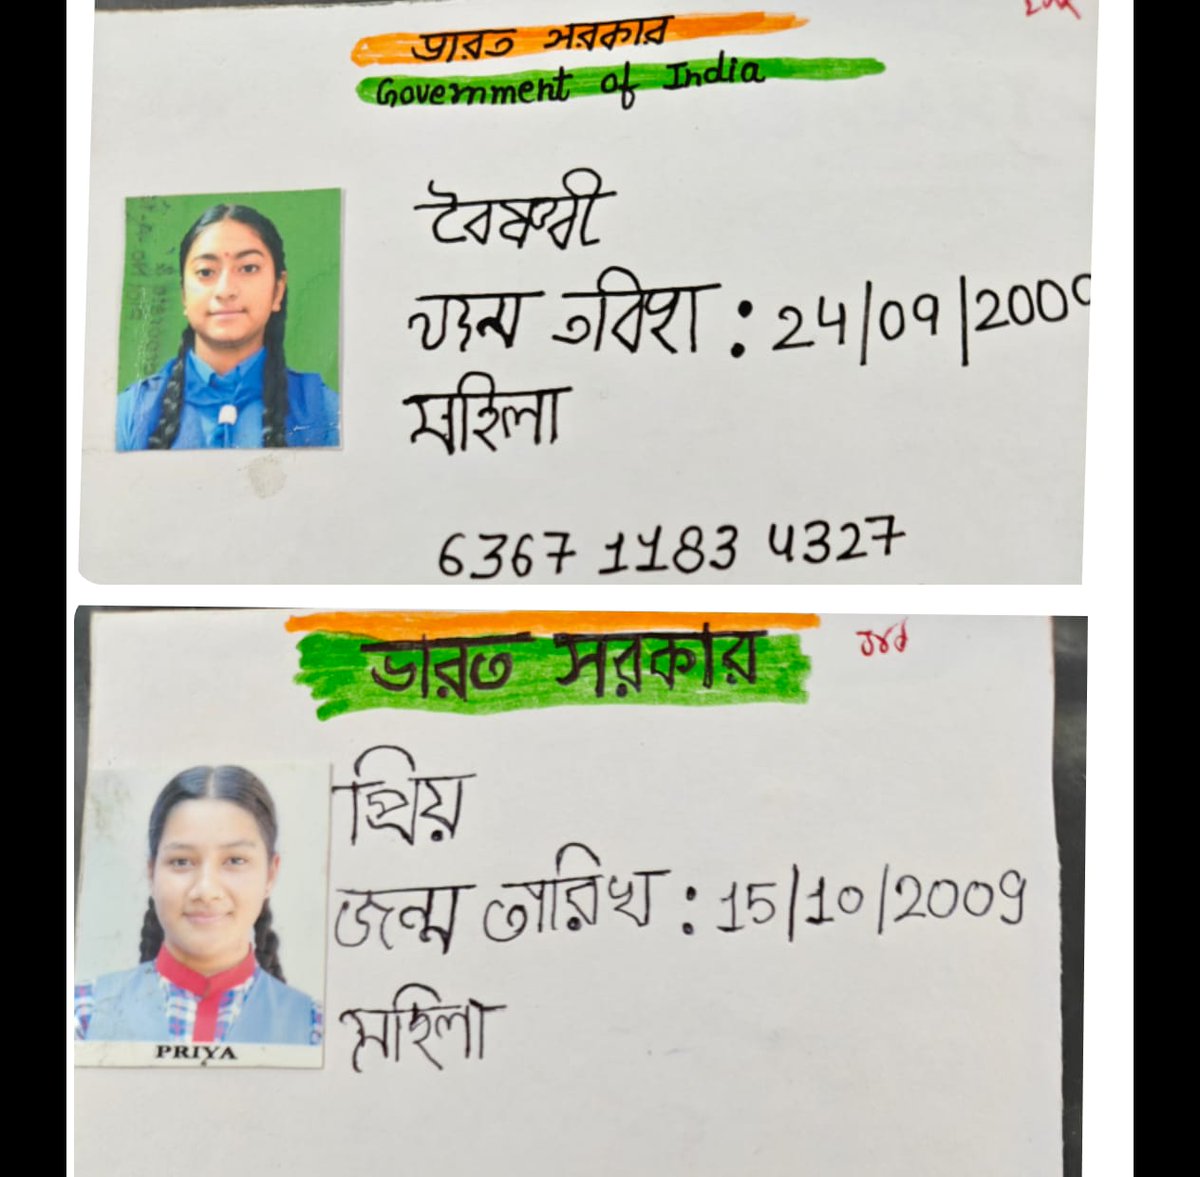 ভারত সরকার
Government of India
বৈষ্ণবী
জন্ম তবিখ : 24/09/2009
মহিলা
6367 1183 4327
ভারত সরকার
প্রিয়
PRIYA
জন্ম তারিখ : 15/10/2009
মহিলা